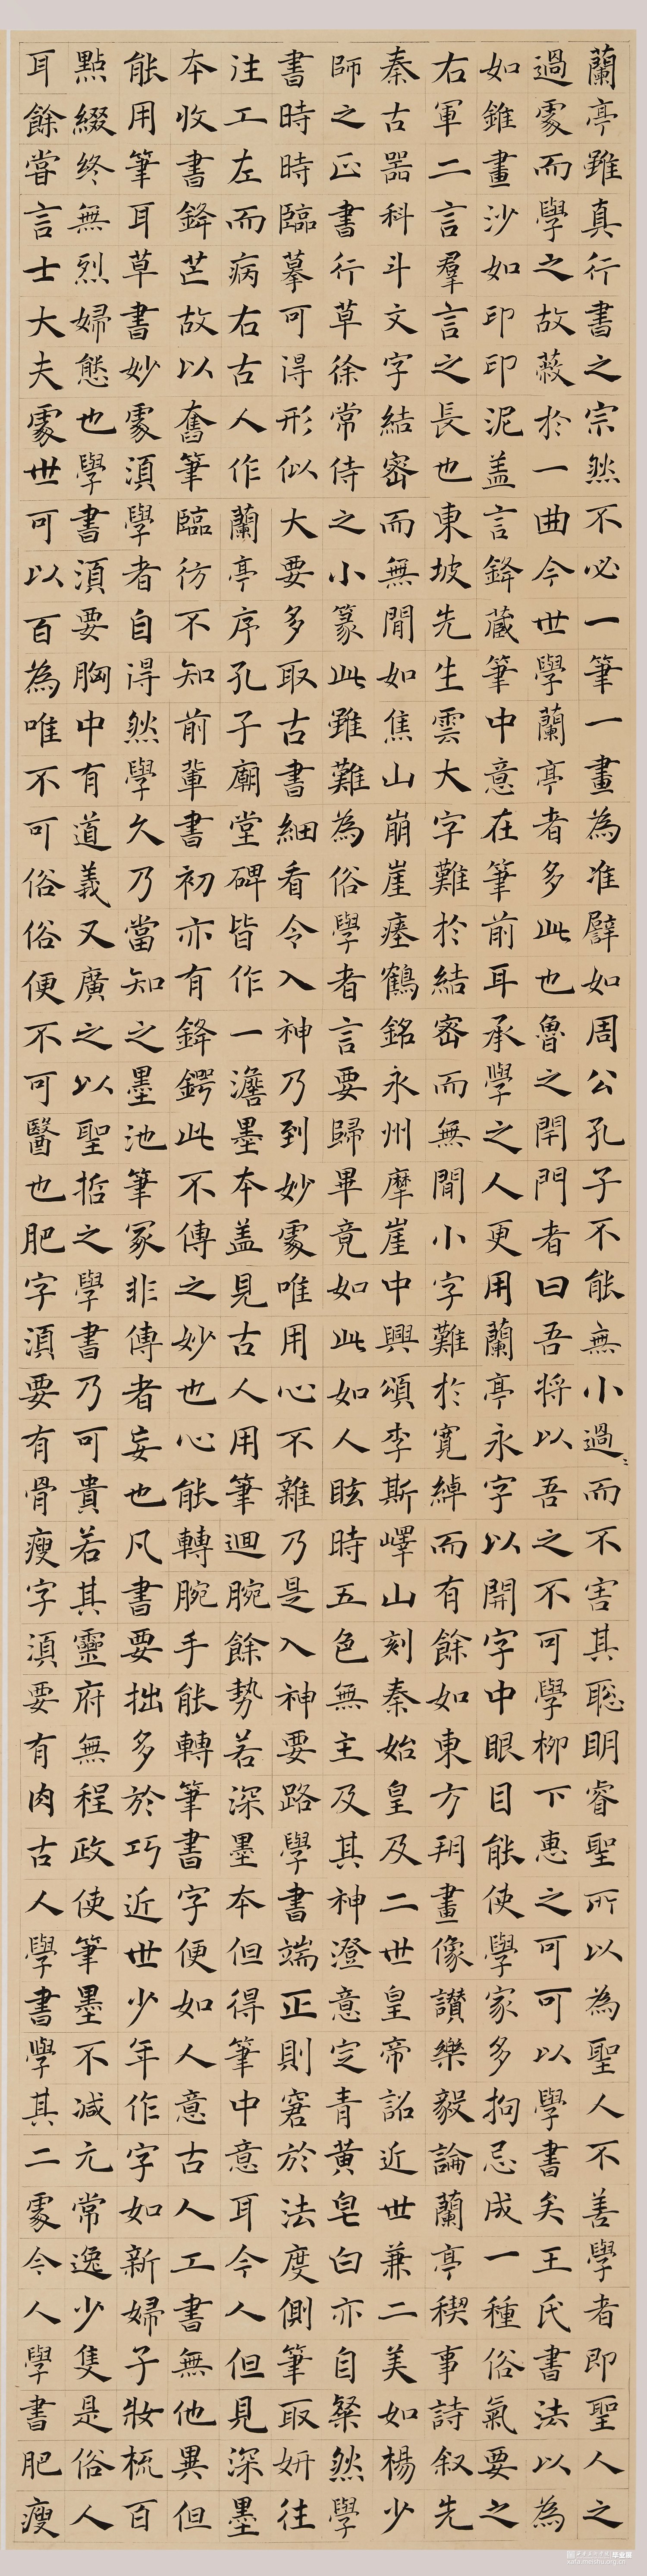 蘭亭雖真行書之宗然不必一筆一畫為准辟如周公孔子不能無小過過而不害其聡明睿聖所以為聖人不善學者即聖人之
過處而學之故蔽於一曲今世學蘭亭者多此也魯之閈門者曰吾将以吾之不可學柳下惠之可可以學書矣王氏書法以為
如錐畫沙如印印泥盖言鋒蔵筆中意在筆前耳承學之人更用蘭亭永字以開字中眼目能使學家多拘忌成一種俗氣要之
右軍二言羣言之長也東坡先生雲大字難於結密而無間小字難於寛綽而有餘如東方朔畫像讃樂毅論蘭亭禊事詩叙先
秦古器科斗文字結密而無間如焦山崩崖瘞鶴銘永州摩崖中興頌李斯嶧山刻秦始皇及二世皇帝詔近世兼二美如楊少
師之正書行草徐常侍之小篆此雖難為俗學者言要歸畢竟如此如人眩時五色無主及其神澄意定青黃皂白亦自粲然學
書時時臨摹可得形似大要多取古書細看令入神乃到妙處唯用心不雜乃是入神要路學書端正則窘於法度側筆取妍往
注工左而病右古人作蘭亭序孔子廟堂碑皆作一澹墨本盖見古人用筆迴腕餘勢若深墨本但得筆中意耳今人但見深墨
本收書鋒芒故以奮筆臨彷不知前輩書初亦有鋒鍔此不傳之妙也心能轉腕手能轉筆書字便如人意古人工書無他異但
能用筆耳草書妙處湏學者自得然學久乃當知之墨池筆冢非傳者妄也凡書要拙多於巧近世少年作字如新婦子妝梳百
點綴終無烈婦態也學書湏要胸中有道義又廣之以聖哲之學書乃可貴若其靈府無程政使筆墨不減元常逸少隻是俗人
耳餘嘗言士大夫處世可以百為唯不可俗俗便不可醫也肥字湏要有骨瘦字湏要有肉古人學書學其二處今人學書肥瘦